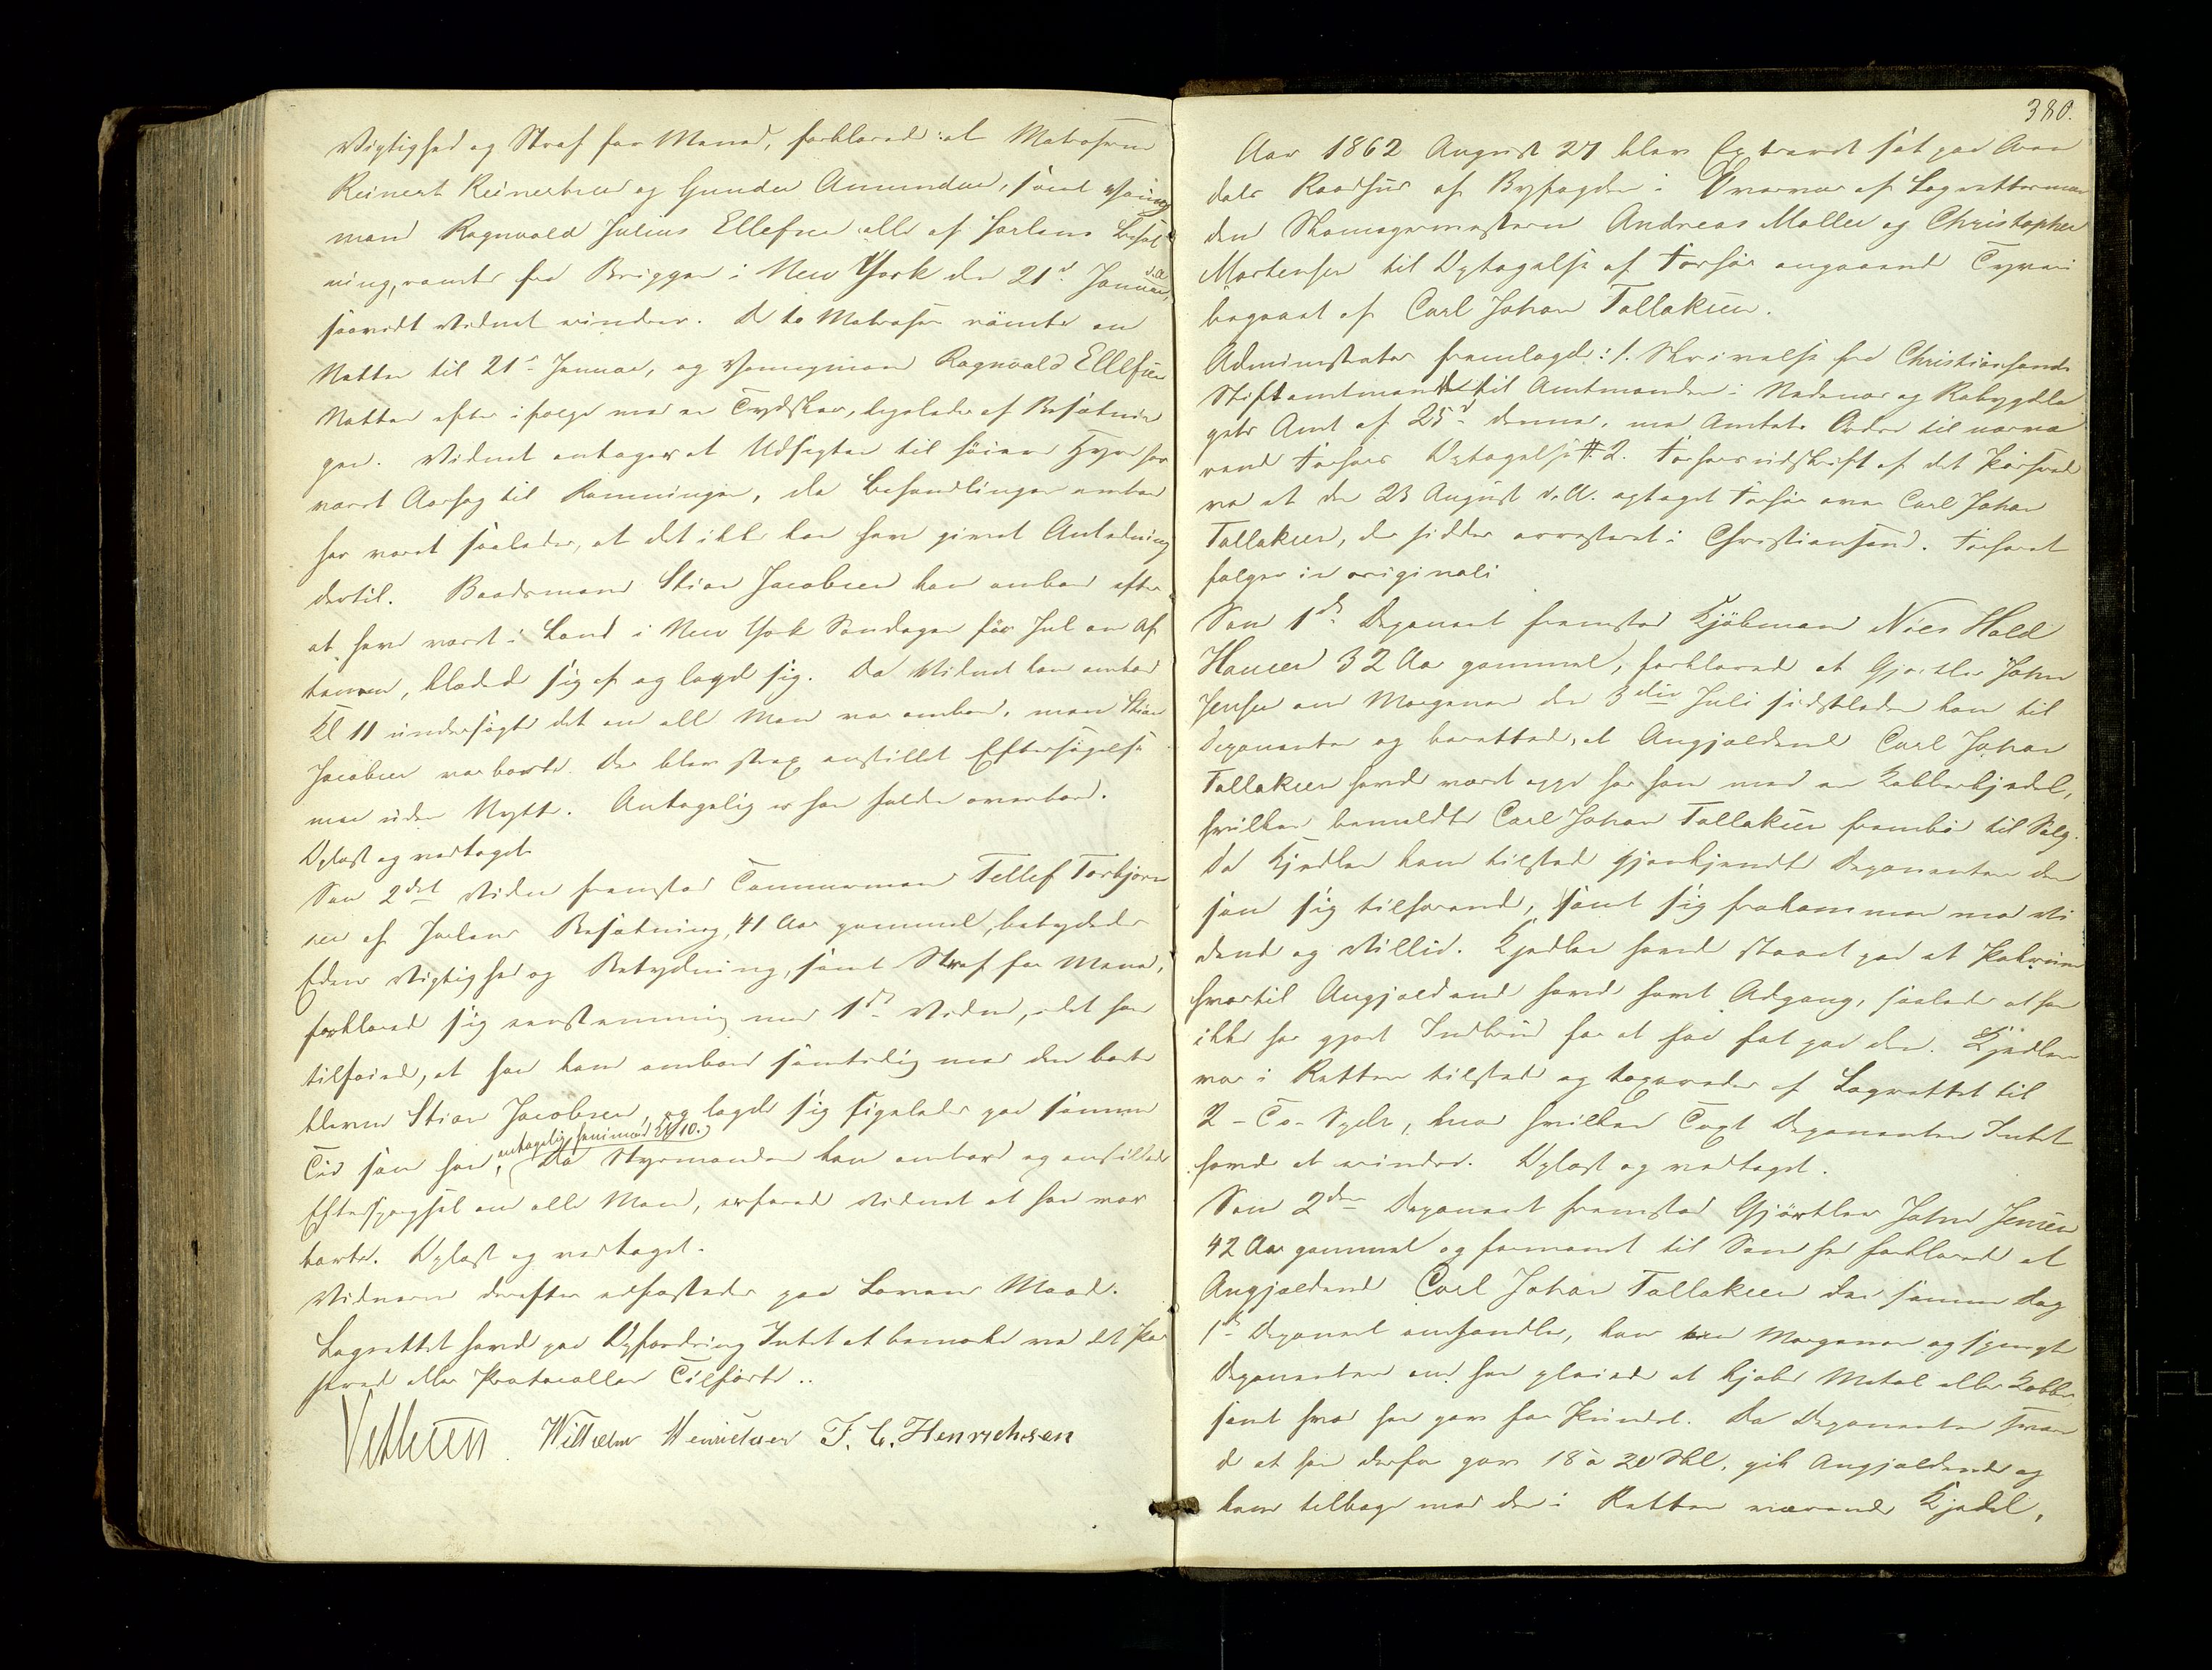 Vigtighed og Straf for Meened, forklarede: at Matroserne
Reinert Reinertsen og Gunder Amundsen, samt Jung
mand Ragnvald Julius Ellefsen alle af Jarlens Besæt
ning, rømte fra Briggen i New York den 21de Januar d.A.,
saavidt Vidnet erindrer. De to Matroser rømte om
Natten til 21de Januar, og Jungmand Ragnvald Ellefsen
Natten efter ifølge med en Tydsker, ligeledes af Besætnin
gen. Vidnet antager at Udsigten til høiere Hyre har
været Aarsag til Rømningen, da Behandlingen ombord
har været saaledes, at det ikke kan have givet Anledning
dertil. Baadsmand Stian Jacobsen kom ombord efter
at have været i Land i New York Søndagen før Jul om Af
tenen, klædte sig af og lagde sig. Da Vidnet kom ombord
Kl 11 undersøgte det om alle Mand var ombord, men Stian
Jacobsen var borte. Der blev strax anstillet Eftersøgelse
men uden Nytte. Antagelig er han falden overbord.
Oplæst og vedtaget.
Som 2det Vidne fremstod Tømmermand Tellef Torbjørn
sen af Jarlens Besætning, 41 Aar gammel, betydedes
Edens Vigtighed og Betydning, samt Straf for Meened,
forklarede sig eenstemmig med 1ste Vidne, idet han
tilføiede, at han kom ombord samtidig med den bort
blevne Stian Jacobsen, og lagde sig ligeledes paa samme
Tid som han, antagelig henimod Kl 10. Da Styrmanden kom ombord og anstillede
Efterspørgsel om alle Mand, erfarede Vidnet at han var
borte. Oplæst og vedtaget.
Vidnerne derefter edfæstedes paa Lovens Maade.
Lagrettet havde paa Opfordring Intet at bemærke ved det Pas
serede eller Protocollen Tilførte..
Vethusen Wilhelm Henrichsen F. C. Henrichsen
380.
Aar 1862 August 27 blev Extraret sat paa Aren
dals Raadhus af Byfogden i Overvær af Lagrettesmæn
dene Skomagermesterne Andreas Møller og Christopher
Mortensen til Optagelse af Forhør angaaende Tyveri
begaaet af Carl Johan Tallaksen.
Administrator fremlagde: 1. Skrivelse fra Christiansands
Stiftamtmand til Amtmanden i Nedenes og Robygdela
gets Amt af 25de dennes, med Amtets Ordre til nærvæ
rende Forhørs Optagelse # 2. Forhørsudskrift af det Passerede
ved et den 23 August d.A. optaget Forhør over Carl Johan
Tallaksen, der sidder arresteret i Christiansand. Forhøret
følger in originali
Som 1ste Deponent fremstod Kjøbmand Niels Hald
Hansen 32 Aar gammel, forklarede at Gjørtler John
Jensen om Morgenen den 3die Juli sidstleden kom til
Deponenten og berettede, at Angjældende Carl Johan
Tallaksen havde været oppe hos ham med en Kobberkjedel,
hvilken bemeldte Carl Johan Tallaksen frembød til Salg.
Da Kjedlen kom tilstede gjenkjendte Deponenten den
som sig tilhørende, samt sig frakommen mod Vi
dende og Villie. Kjedlen havde staaet paa et Pakrum
hvortil Angjældende havde havt Adgang, saaledes at han
ikke har gjort Indbrud for at faae fat paa den. Kjedlen
var i Retten tilstede og taxeredes af Lagrettet til
2 - To - Spdlr, mod hvilken Taxt Deponenten Intet
havde at erindre. Oplæst og vedtaget.
Som 2den Deponent fremstod Gjørtler John Jensen
42 Aar gammel og formanet til Sandhed forklarede at
Angjældende Carl Johan Tallaksen den samme Dag
1ste Deponent omhandler, kom om Morgenen og spurgte
Deponenten om han pleiede at kjøbe Metal eller Kobber
samt hvad han gav for Pundet. Da Deponenten svare
de at han derfor gav 18 à 20 Skl. gik Angjældende og
kom tilbage med den i Retten værende Kjedel,